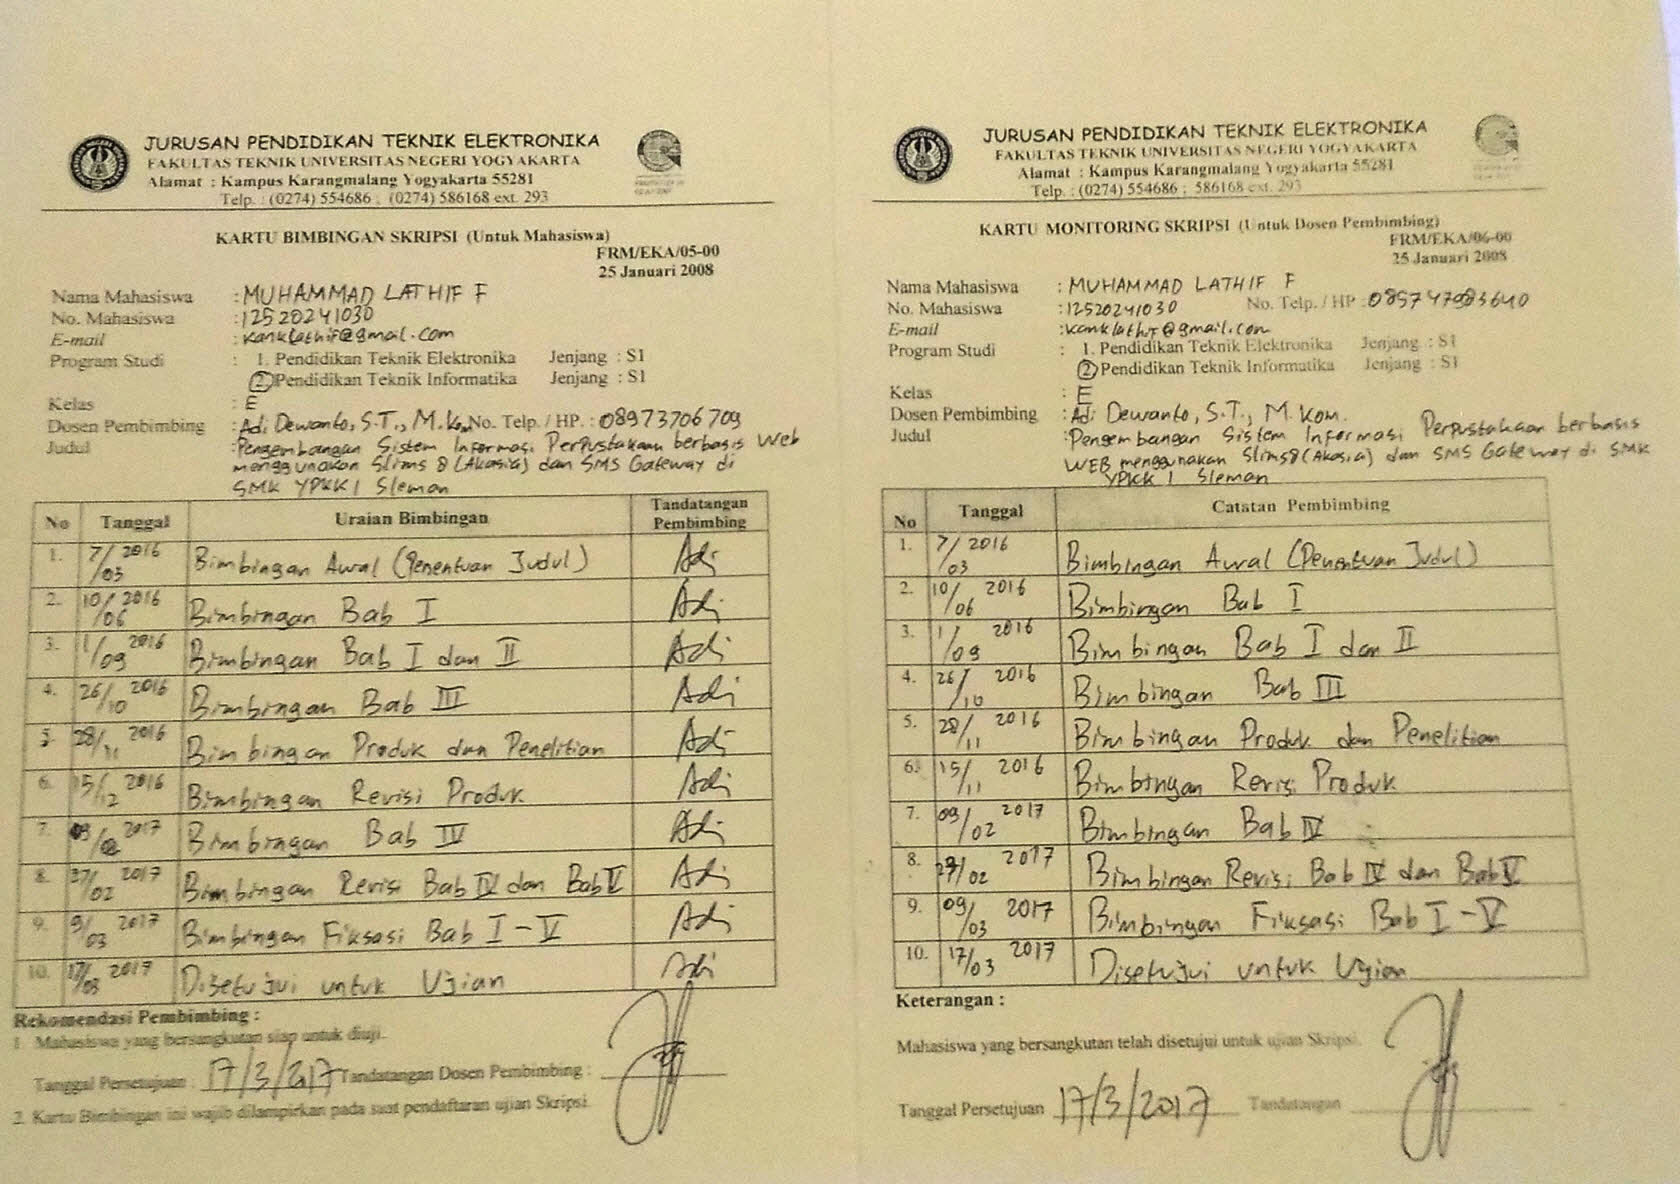 JURUSAN PENDIDIKAN TEKNIK ELEKTRONIKA
FAKULTAS TEKNIK UNIVERSITAS NEGERI YOGYAKARTA
Alamat : Kampus Karangmalang Yogyakarta 55281
Telp. : (0274) 554686 ; (0274) 586168 ext. 293
KARTU BIMBINGAN SKRIPSI (Untuk Mahasiswa)
FRM/EKA/05-00
25 Januari 2008
Nama Mahasiswa : MUHAMMAD LATHIF F
No. Mahasiswa : 12520241030
E-mail : kanklathif@gmail.com
Program Studi : 1. Pendidikan Teknik Elektronika Jenjang : S1
2. Pendidikan Teknik Informatika Jenjang : S1
Kelas : E
Dosen Pembimbing : Adi Dewanto, S.T., M.Kom No. Telp. / HP. : 08973706709
Judul : Pengembangan Sistem Informasi Perpustakaan berbasis Web
menggunakan Slims 8 (Akasia) dan SMS Gateway di
SMK YPKK 1 Sleman
No Tanggal Uraian Bimbingan Tandatangan Pembimbing
1. 7/03 2016 Bimbingan Awal (Penentuan Judul) Adi
2. 10/06 2016 Bimbingan Bab I Adi
3. 1/09 2016 Bimbingan Bab I dan II Adi
4. 26/10 2016 Bimbingan Bab III Adi
5. 28/11 2016 Bimbingan Produk dan Penelitian Adi
6. 15/12 2016 Bimbingan Revisi Produk Adi
7. 2017 Bimbingan Bab IV Adi
8. 27/02 2017 Bimbingan Revisi Bab IV dan Bab V Adi
9. 9/03 2017 Bimbingan Fiksasi Bab I - V Adi
10. 17/03 2017 Disetujui untuk Ujian Adi
Rekomendasi Pembimbing :
1. Mahasiswa yang bersangkutan siap untuk diuji.
Tanggal Persetujuan : 17/3/2017 Tandatangan Dosen Pembimbing :
2. Kartu Bimbingan ini wajib dilampirkan pada saat pendaftaran ujian Skripsi.
JURUSAN PENDIDIKAN TEKNIK ELEKTRONIKA
FAKULTAS TEKNIK UNIVERSITAS NEGERI YOGYAKARTA
Alamat : Kampus Karangmalang Yogyakarta 55281
Telp. : (0274) 554686 ; 586168 ext. 293
KARTU MONITORING SKRIPSI (Untuk Dosen Pembimbing)
FRM/EKA/06-00
25 Januari 2008
Nama Mahasiswa : MUHAMMAD LATHIF F
No. Mahasiswa : 12520241030 No. Telp. / HP : 085747983640
E-mail : kanklathif@gmail.com
Program Studi : 1. Pendidikan Teknik Elektronika Jenjang : S1
2. Pendidikan Teknik Informatika Jenjang : S1
Kelas : E
Dosen Pembimbing : Adi Dewanto, S.T., M.Kom.
Judul : Pengembangan Sistem Informasi Perpustakaan berbasis
WEB menggunakan Slims8 (Akasia) dan SMS Gateway di SMK
YPKK 1 Sleman
No Tanggal Catatan Pembimbing
1. 7/03 2016 Bimbingan Awal (Penentuan Judul)
2. 10/06 2016 Bimbingan Bab I
3. 1/09 2016 Bimbingan Bab I dan II
4. 26/10 2016 Bimbingan Bab III
5. 28/11 2016 Bimbingan Produk dan Penelitian
6. 15/11 2016 Bimbingan Revisi Produk
7. 09/02 2017 Bimbingan Bab IV
8. 27/02 2017 Bimbingan Revisi Bab IV dan Bab V
9. 09/03 2017 Bimbingan Fiksasi Bab I - V
10. 17/03 2017 Disetujui untuk Ujian
Keterangan :
Mahasiswa yang bersangkutan telah disetujui untuk ujian Skripsi.
Tanggal Persetujuan 17/3/2017 Tandatangan